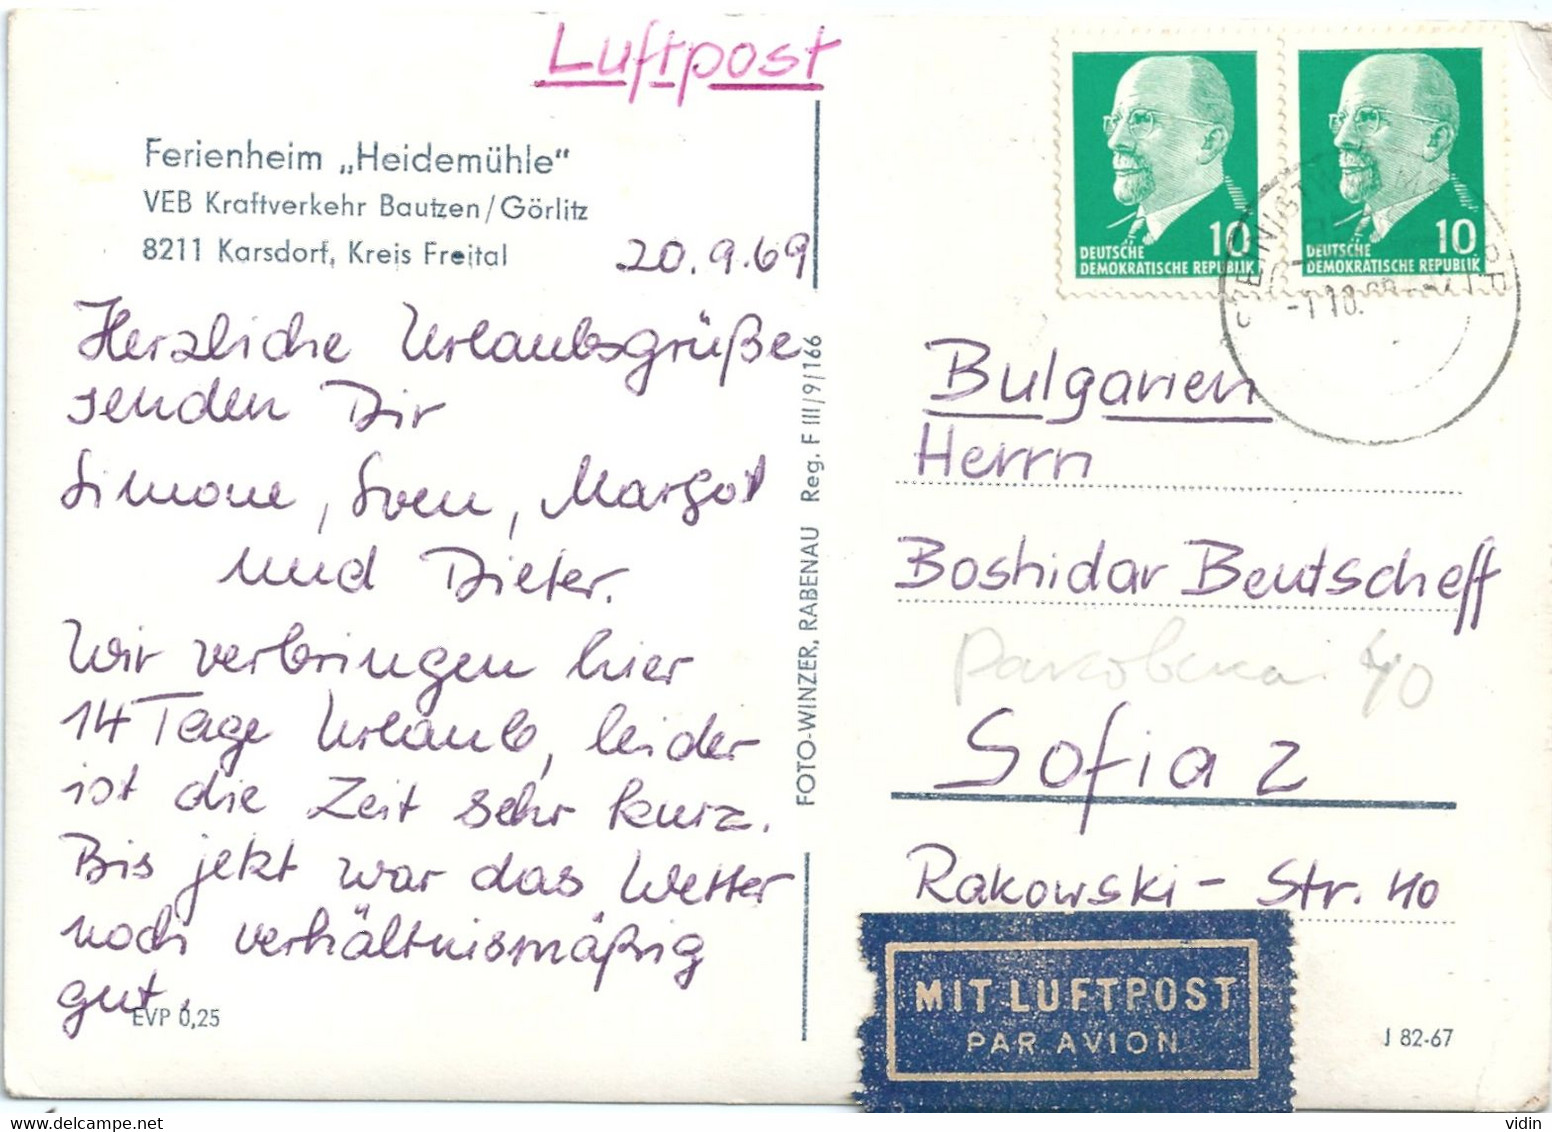 Luftpost
Ferienheim „Heidemühle"
VEB Kraftverkehr Bautzen/Görlitz
8211 Karsdorf, Kreis Freital
20.9.69
Herzliche Urlaubsgrüße
senden Dir
Simone, Sven, Margot
und Dieter.
Wir verbringen hier
14 Tage Urlaub, leider
ist die Zeit sehr kurz.
Bis jetzt war das Wetter
noch verhältnismäßig
gut.
EVP 0,25
FOTO-WINZER, RABENAU Reg. F III/9/166
10
DEUTSCHE
DEMOKRATISCHE REPUBLIK
10
DEUTSCHE
DEMOKRATISCHE REPUBLIK
Bulgarien
Herrn
Boshidar Beutscheff
40
Sofia 2
Rakowski-Str. 40
MIT LUFTPOST
PAR AVION
J 82-67
www.delcampe.net
vidin